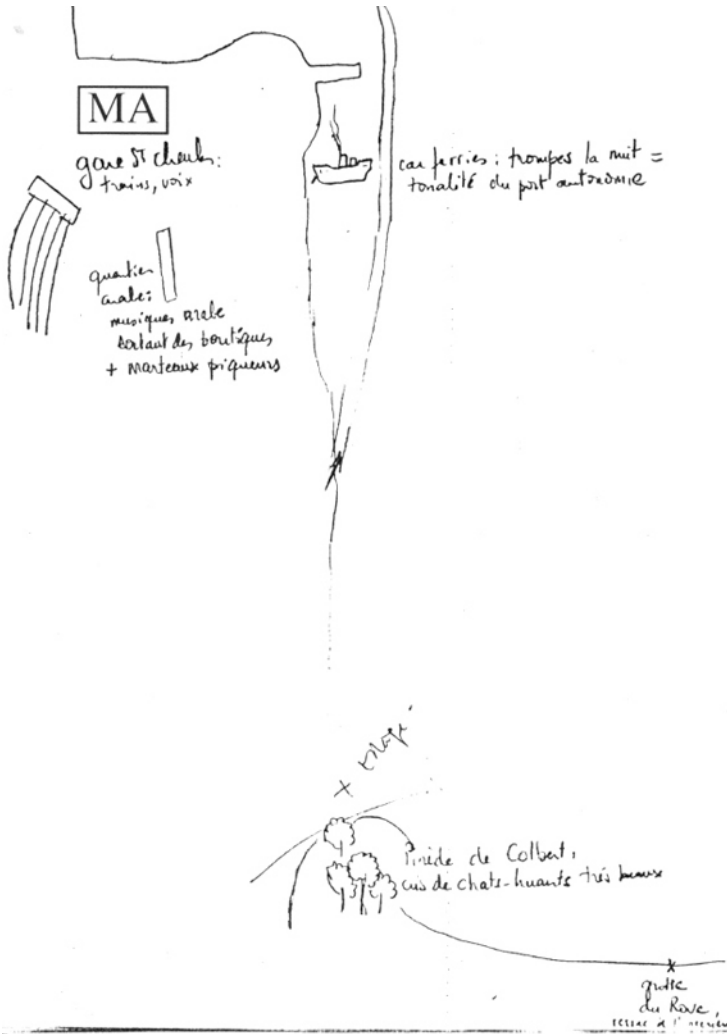 MA
gare St Charles:
trains, voix
car ferries : trompes la nuit =
tonalité du port autonomie
quartier
arabe:
musiques arabe
sortant des boutiques
+ marteaux piqueurs
+
Pinède de Colbert,
cris de chats-huants très beaux
grotte
du Rove,